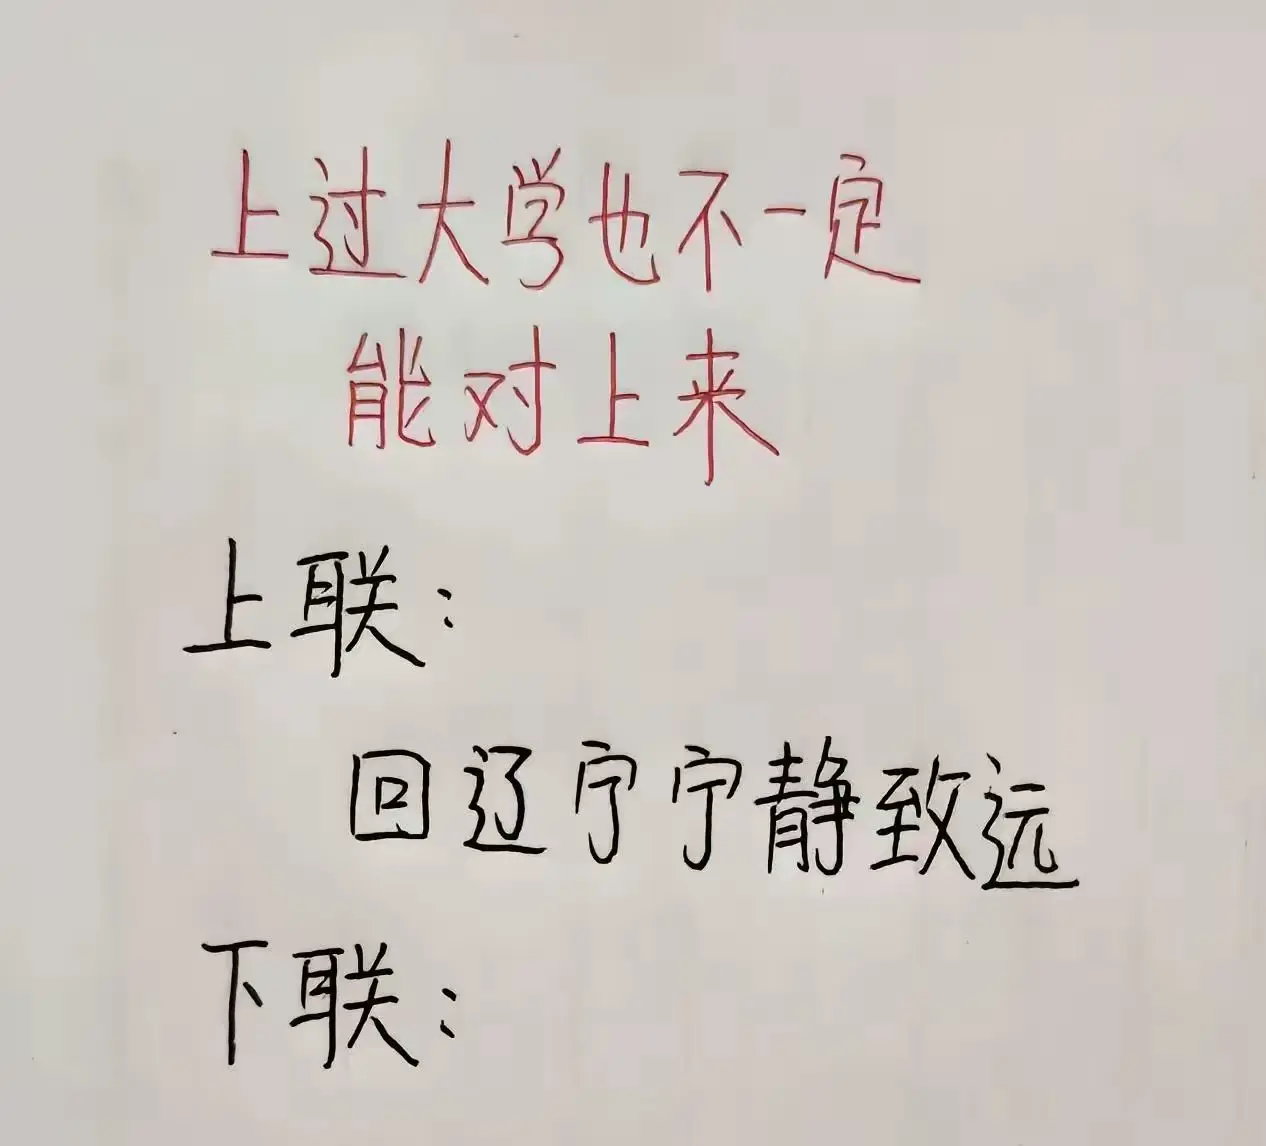 上过大学也不一定
能对上来
上联:
回辽宁宁静致远
下联: